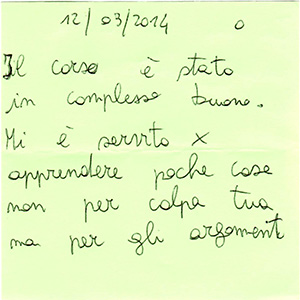 12/03/2014 o
Il corso è stato
in complesso buono.
Mi è servito x
apprendere poche cose
non per colpa tua
ma per gli argomenti